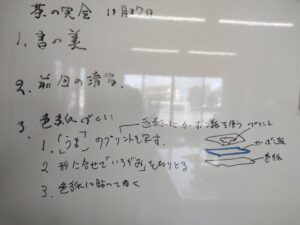 茶の実会 11月27日
1. 書の美
2. 前回の清書
3. 色紙づくり
色紙にカーボン紙を使う
1. 「うま」のプリントを写す.
2. 形に合せて「いろがみ」を切りとる
3. 色紙に貼っていく
プリント
カーボン紙
色紙